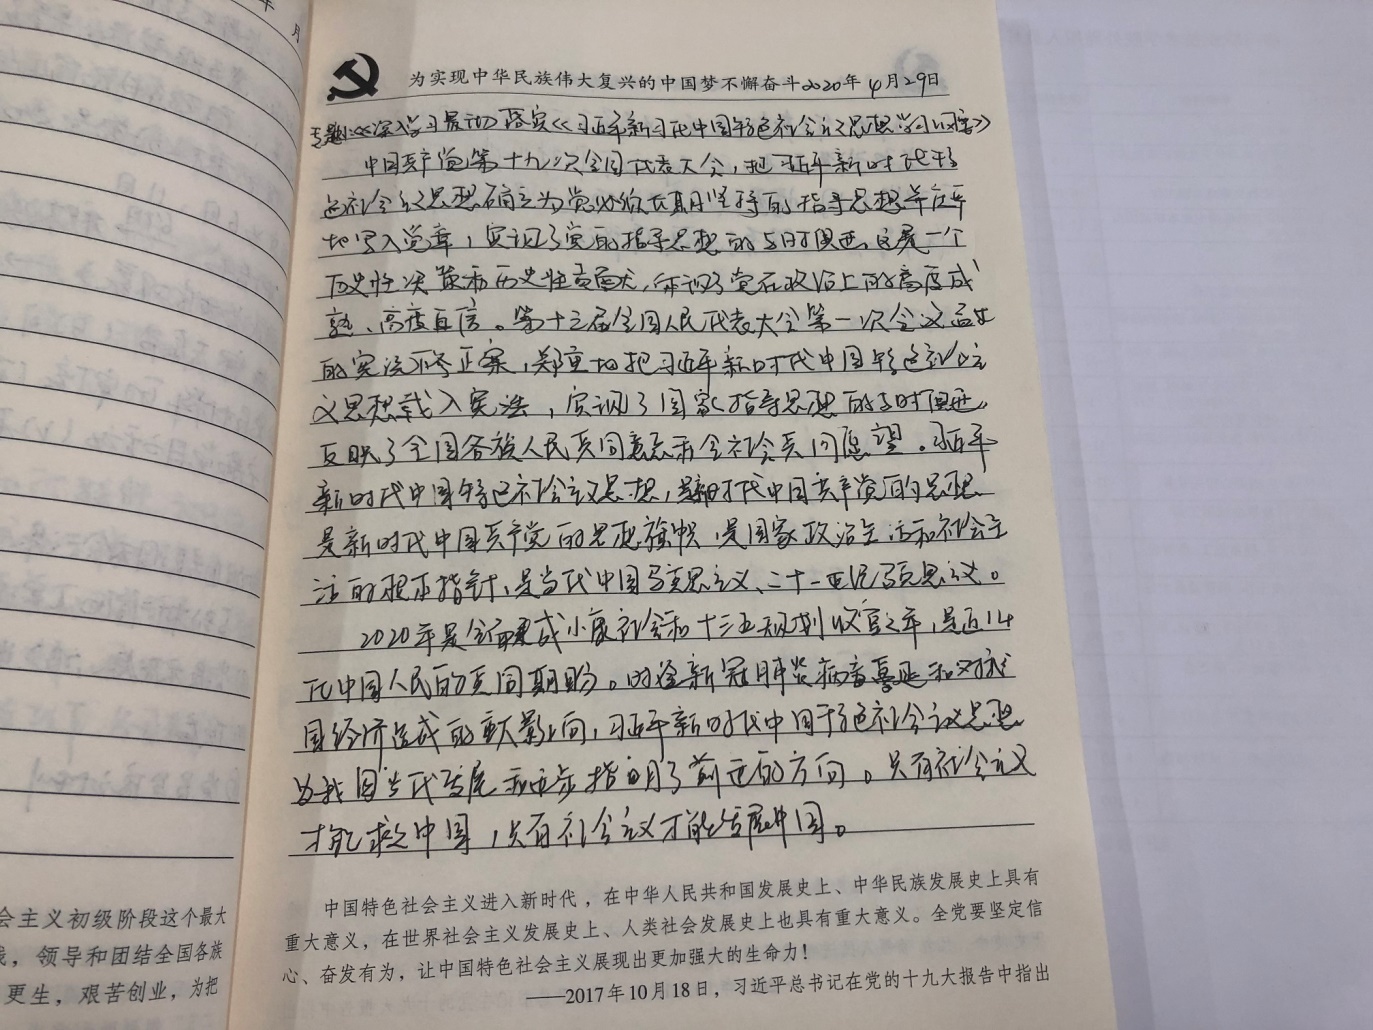 年 月
为实现中华民族伟大复兴的中国梦不懈奋斗2020年 4月29日
专题:《深入学习贯彻》落实《习近平新时代中国特色社会主义思想学习纲要》
中国共产党第十九次全国代表大会,把习近平新时代特
色社会主义思想确立为党必须长期坚持的指导思想并庄严
地写入党章,实现了党的指导思想的与时俱进。这是一个
历史性决策和历史性贡献,体现了党在政治上的高度成
熟、高度自信。第十三届全国人民代表大会第一次会议通过
的宪法修正案,郑重地把习近平新时代中国特色社会主
义思想载入宪法,实现了国家指导思想的与时俱进,
反映了全国各族人民共同意志和全社会共同愿望。习近平
新时代中国特色社会主义思想,是新时代中国共产党的思想
是新时代中国共产党的思想旗帜,是国家政治生活和社会生
活的根本指针,是当代中国马克思主义、二十一世纪马克思主义。
2020年是全面建成小康社会和十三五规划收官之年,是近14
亿中国人民的共同期盼。时逢新冠肺炎病毒蔓延和对我
国经济造成的重大影响,习近平新时代中国特色社会主义思想
为我国当代发展和进步指明了前进的方向。只有社会主义
才能救中国,只有社会主义才能发展中国。
中国特色社会主义进入新时代,在中华人民共和国发展史上、中华民族发展史上具有
重大意义,在世界社会主义发展史上、人类社会发展史上也具有重大意义。全党要坚定信
心、奋发有为,让中国特色社会主义展现出更加强大的生命力!
——2017年10月18日,习近平总书记在党的十九大报告中指出
会主义初级阶段这个最大
,领导和团结全国各族
更生,艰苦创业,为把